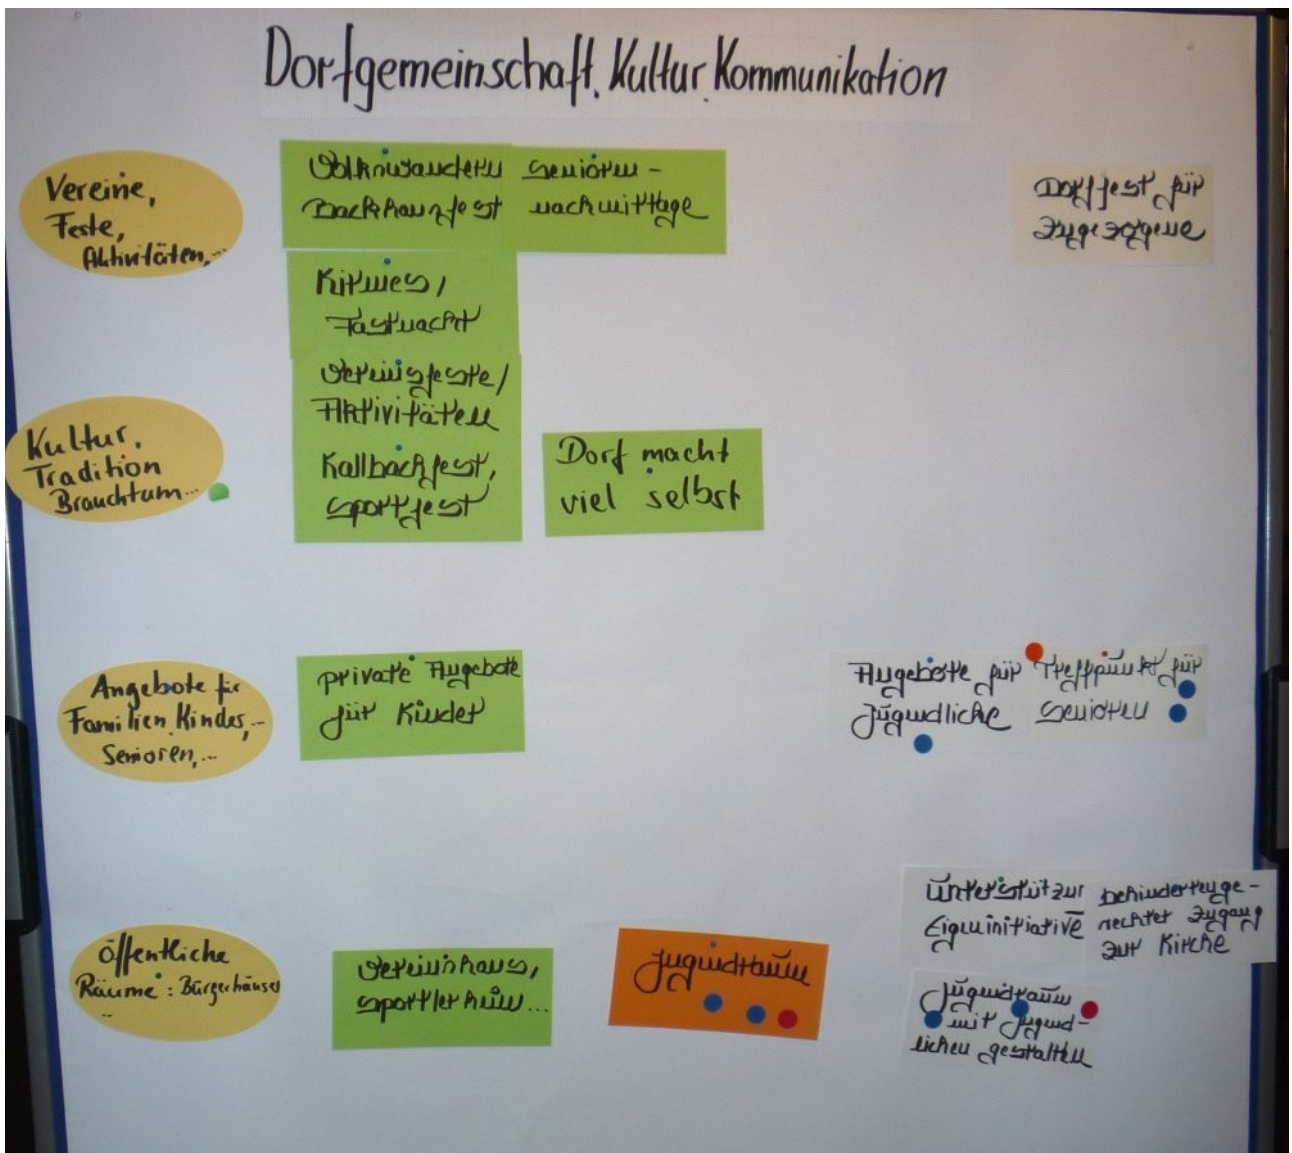 Dorfgemeinschaft, Kultur, Kommunikation
Vereine,
Feste,
Aktivitäten,...
Volkswandern
Backhausfest
Senioren-
nachmittage
Dorffest für
Zugezogene
Kirmes,
Fastnacht
Vereinsfeste,
Aktivitäten
Kallbachfest,
Sportfest
Kultur,
Tradition
Brauchtum...
Dorf macht
viel selbst
Angebote für
Familien, Kinder,...
Senioren,...
private Angebote
für Kinder
Angebote für
Jugendliche
Treffpunkt für
Senioren
öffentliche
Räume: Bürgerhäuser
..
Vereinshaus,
Sportlerheim...
Jugendraum
Unterstützung
Eigeninitiative
behindertenge-
rechter Zugang
zur Kirche
Jugendraum
mit Jugend-
lichen gestalten